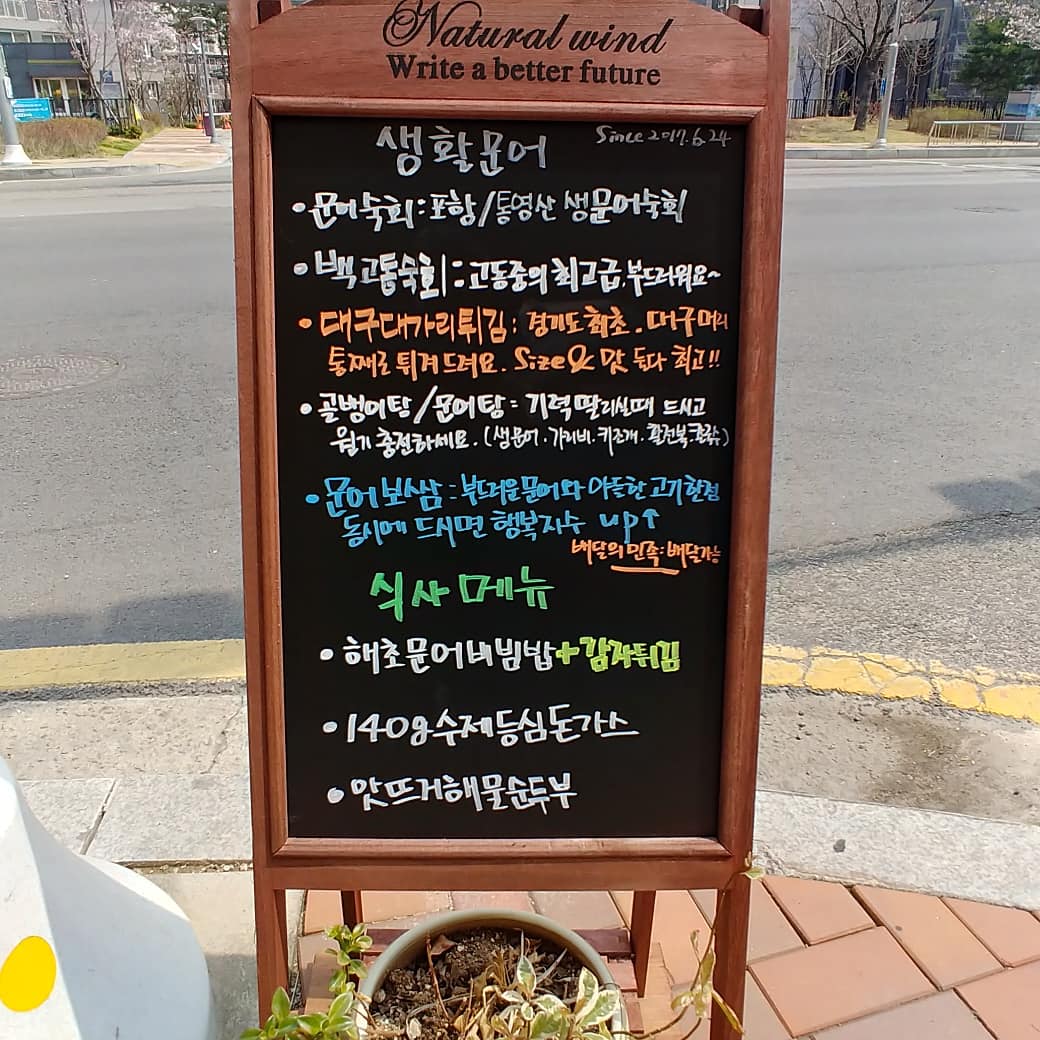 Natural wind
Write a better future
생활문어 Since 2017.6.24
• 문어숙회 : 포항/통영산 생문어숙회
• 백고동숙회 : 고동중의 최고급. 부드러워요~
• 대구대가리튀김 : 경기도 최초. 대구머리
통째로 튀겨 드려요. Size & 맛 둘다 최고!!
• 골뱅이탕/문어탕 = 기력 딸리실때 드시고
원기 충전하세요. (생문어.가리비.키조개.활전복
• 문어보쌈 : 부드러운 문어와 야들한 고기한점
동시에 드시면 행복지수 up↑
배달의민족:배달가능
식사 메뉴
• 해초문어비빔밥+감자튀김
• 140g수제등심돈가스
• 앗뜨거해물순두부